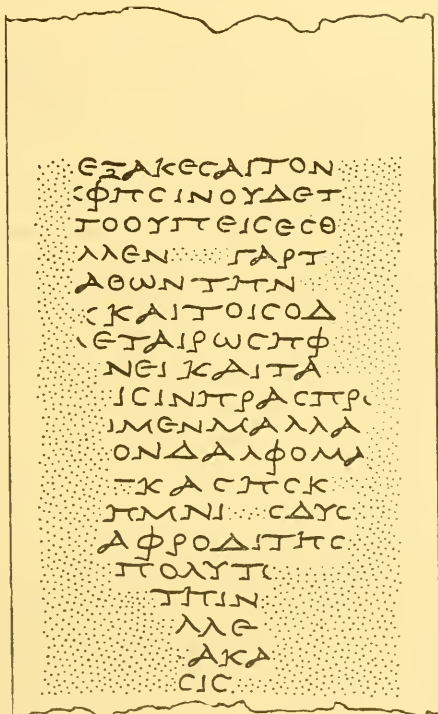 ΕΞΑΚΕCΑΙΤΟΝ
ΦΗCΙΝΟΥΔΕΤ
ΤΟΟΥΠΕΙCΕCΘ
ΛΛΕΝ ΓΑΡΤ
ΑΘΩΝΤΗΝ
CΚΑΙΤΟΙCΟΔ
ΕΤΑΙΡΩCΗΦ
ΝΕΙΚΑΙΤΑ
ΙCΙΝΗΡΑCΗΡ
ΙΜΕΝΜΑΛΛΑ
ΟΝΔΑΛΦΟΜΑ
ΚΑCΗCΚ
ΗΜΝΙ CΔΥC
ΑΦΡΟΔΙΤΗC
ΠΟΛΥΤ
ΤΗΙΝ
ΛΛΕ
ΑΚΑ
CΙC